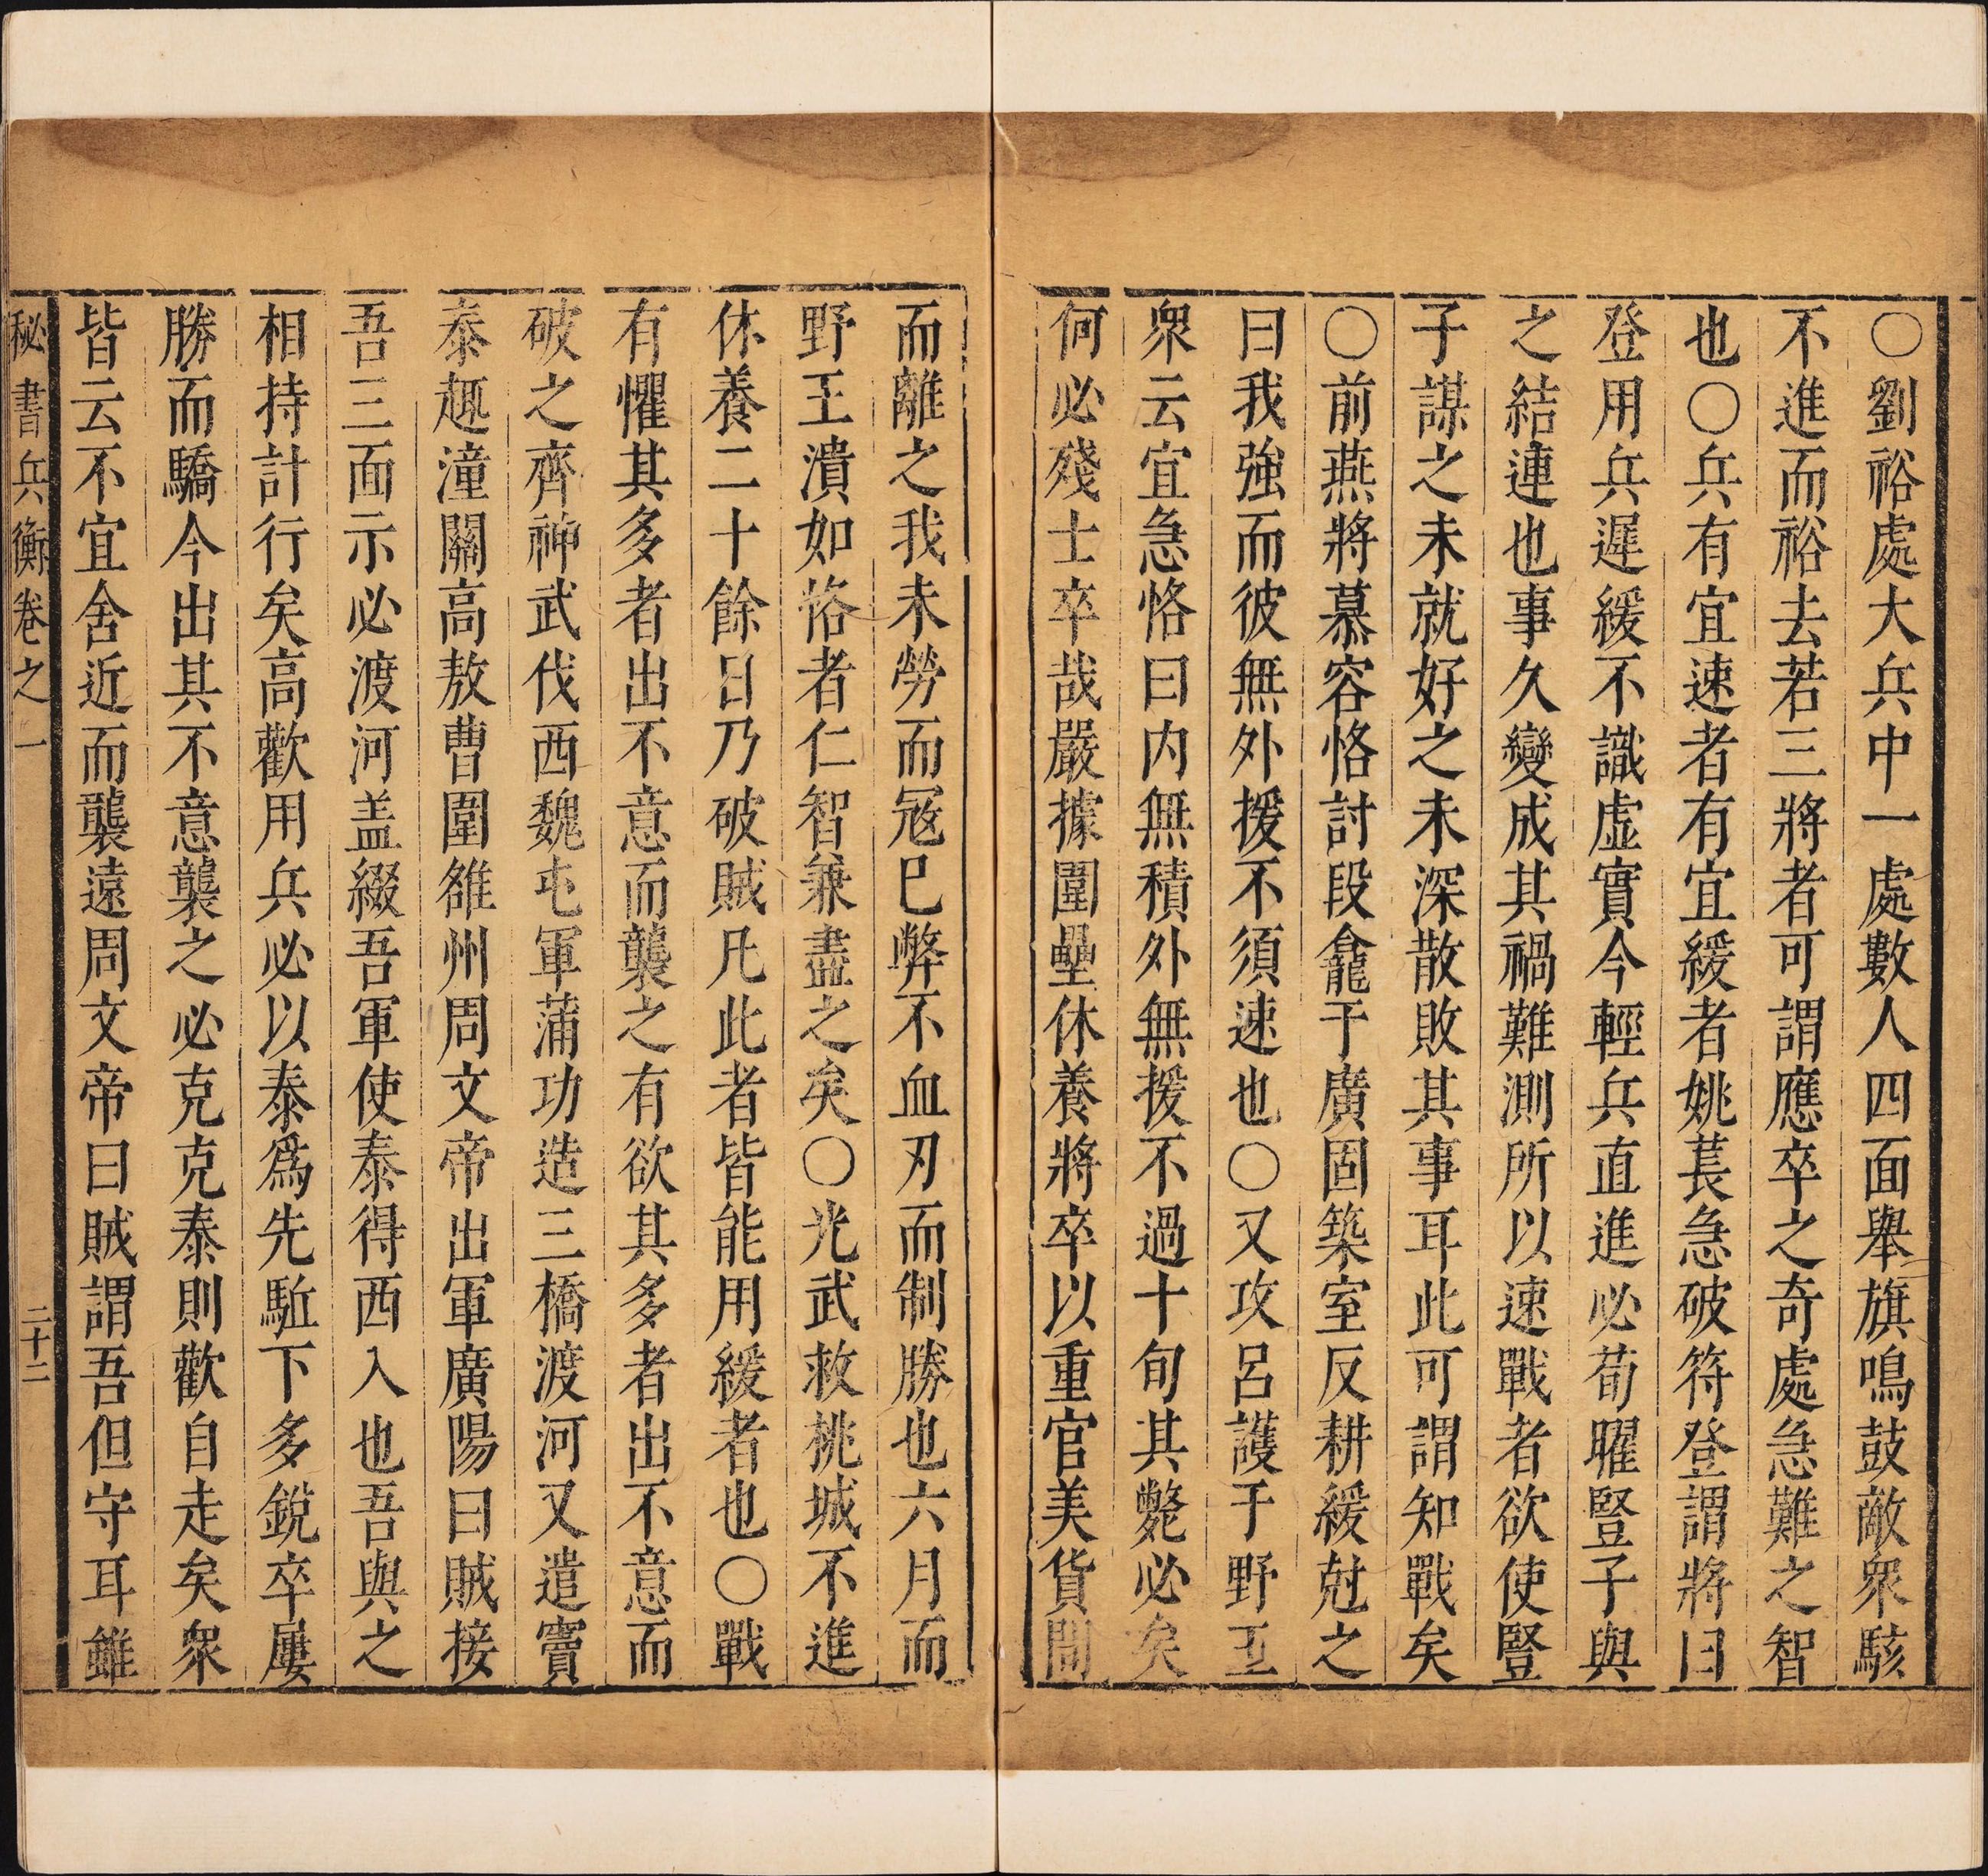 〇劉裕處大兵中一處數人四面舉旗鳴鼓敵衆駭
不進而裕去若三將者可謂應卒之奇處急難之智
也〇兵有宜速者有宜緩者姚萇急破符登謂將曰
登用兵遲緩不識虛實今輕兵直進必荀曜豎子與
之結連也事久變成其禍難測所以速戰者欲使豎
子謀之未就好之未深散敗其事耳此可謂知戰矣
〇前燕將慕容恪討段龕于廣固築室反耕緩尅之
曰我強而彼無外援不須速也〇又攻呂護于野王
衆云宜急恪曰内無積外無援不過十旬其斃必矣
何必殘士卒哉嚴據圍壘休養將卒以重官美貨間
而離之我未勞而冦巳弊不血刃而制勝也六月而
野王潰如恪者仁智兼盡之矣〇光武救桃城不進
休養二十餘日乃破賊凡此者皆能用緩者也〇戰
有懼其多者出不意而襲之有欲其多者出不意而
破之齊神武伐西魏屯軍蒲功造三橋渡河又遣竇
泰趣潼關高敖曹圍雒州周文帝出軍廣陽曰賊接
吾三面示必渡河盖綴吾軍使泰得西入也吾與之
相持計行矣高歡用兵必以泰爲先駈下多銳卒屢
勝而驕今出其不意襲之必克克泰則歡自走矣衆
皆云不宜舍近而襲遠周文帝曰賊謂吾但守耳雖
秘書兵衡卷之一 二十二